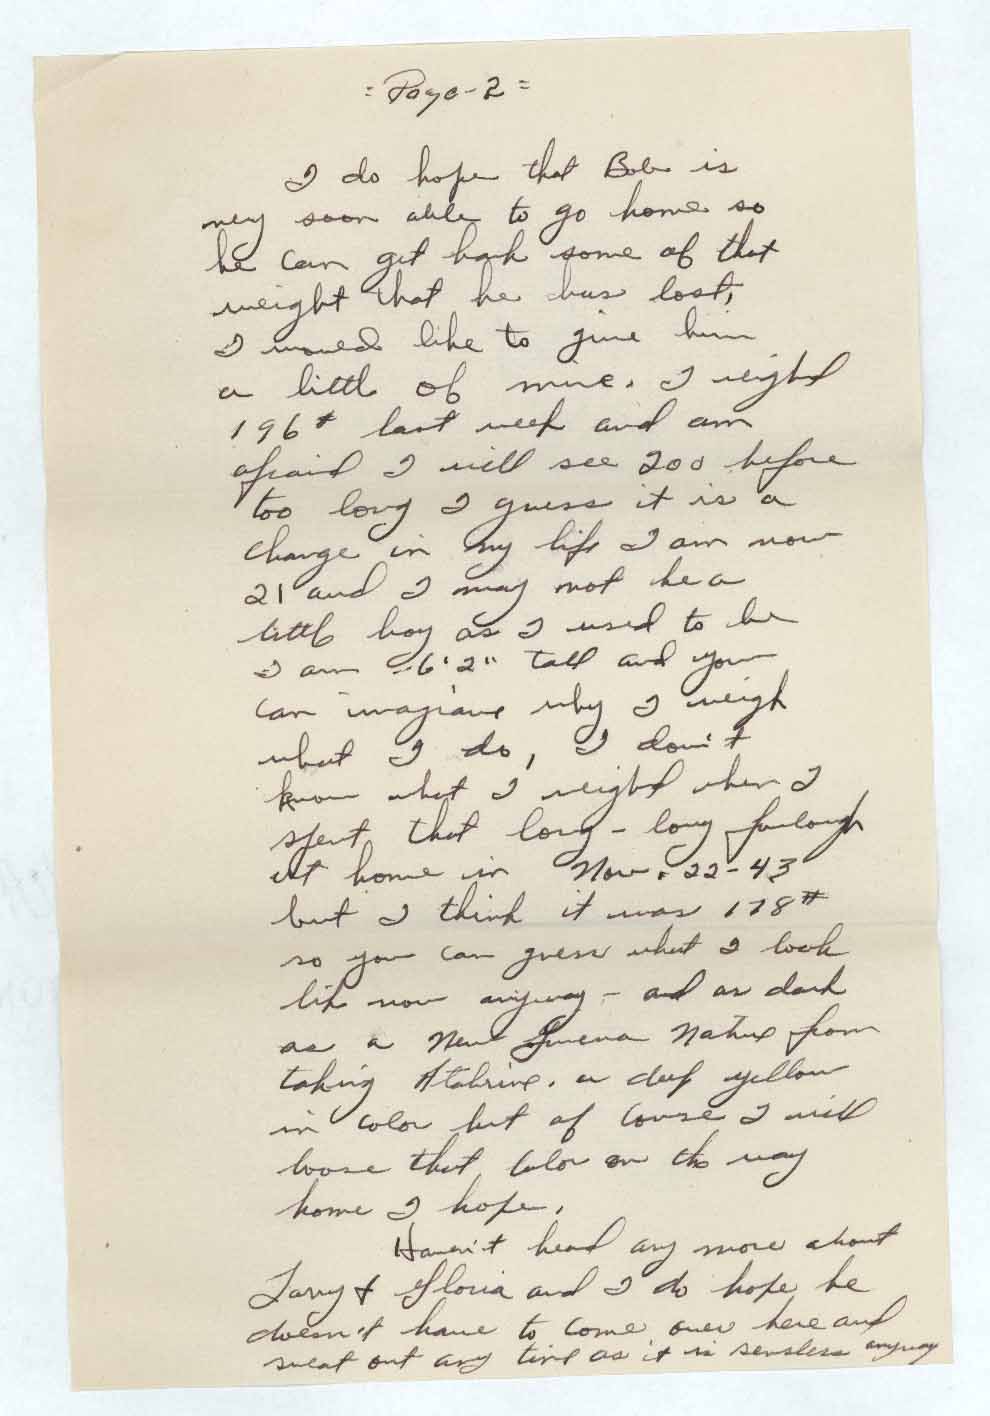 = Page - 2 =
I do hope that Bob is
very soon able to go home so
he can get back some of that
weight that he has lost,
I would like to give him
a little of mine. I weighd
196# last week and am
afraid I will see 200 before
too long I guess it is a
change in my life I am now
21 and I may not be a
little boy as I used to be
I am 6'2" tall and you
can imagiane why I weigh
what I do, I don't
know what I weighd when I
spent that long - long furlough
at home in Nov. 22-43
but I think it was 178#
so you can guess what I look
like now anyway - and as dark
as a New Guinea Native from
taking Atabrine. a deep yellow
in color but of course I will
loose that color on the way
home I hope.
Haven't head any more about
Larry & Gloria and I do hope he
doesn't have to come over here and
sweat out any time as it is sensless anyway